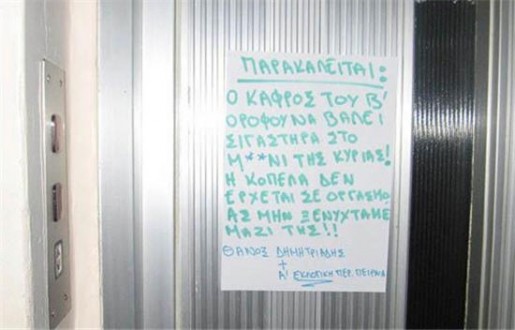 ΠΑΡΑΚΑΛΕΙΤΑΙ:
Ο ΚΑΦΡΟΣ ΤΟΥ Β'
ΟΡΟΦΟΥ ΝΑ ΒΑΛΕΙ
ΣΙΓΑΣΤΗΡΑ ΣΤΟ
Μ**ΝΙ ΤΗΣ ΚΥΡΙΑΣ!
Η ΚΟΠΕΛΑ ΔΕΝ
ΕΡΧΕΤΑΙ ΣΕ ΟΡΓΑΣΜΟ
ΑΣ ΜΗΝ ΞΕΝΥΧΤΑΜΕ
ΜΑΖΙ ΤΗΣ!!
ΘΑΝΟΣ ΔΗΜΗΤΡΙΑΔΗΣ
+
Α' ΕΚΛΟΓΙΚΗ ΠΕΡ. ΠΕΙΡΑΙΑ